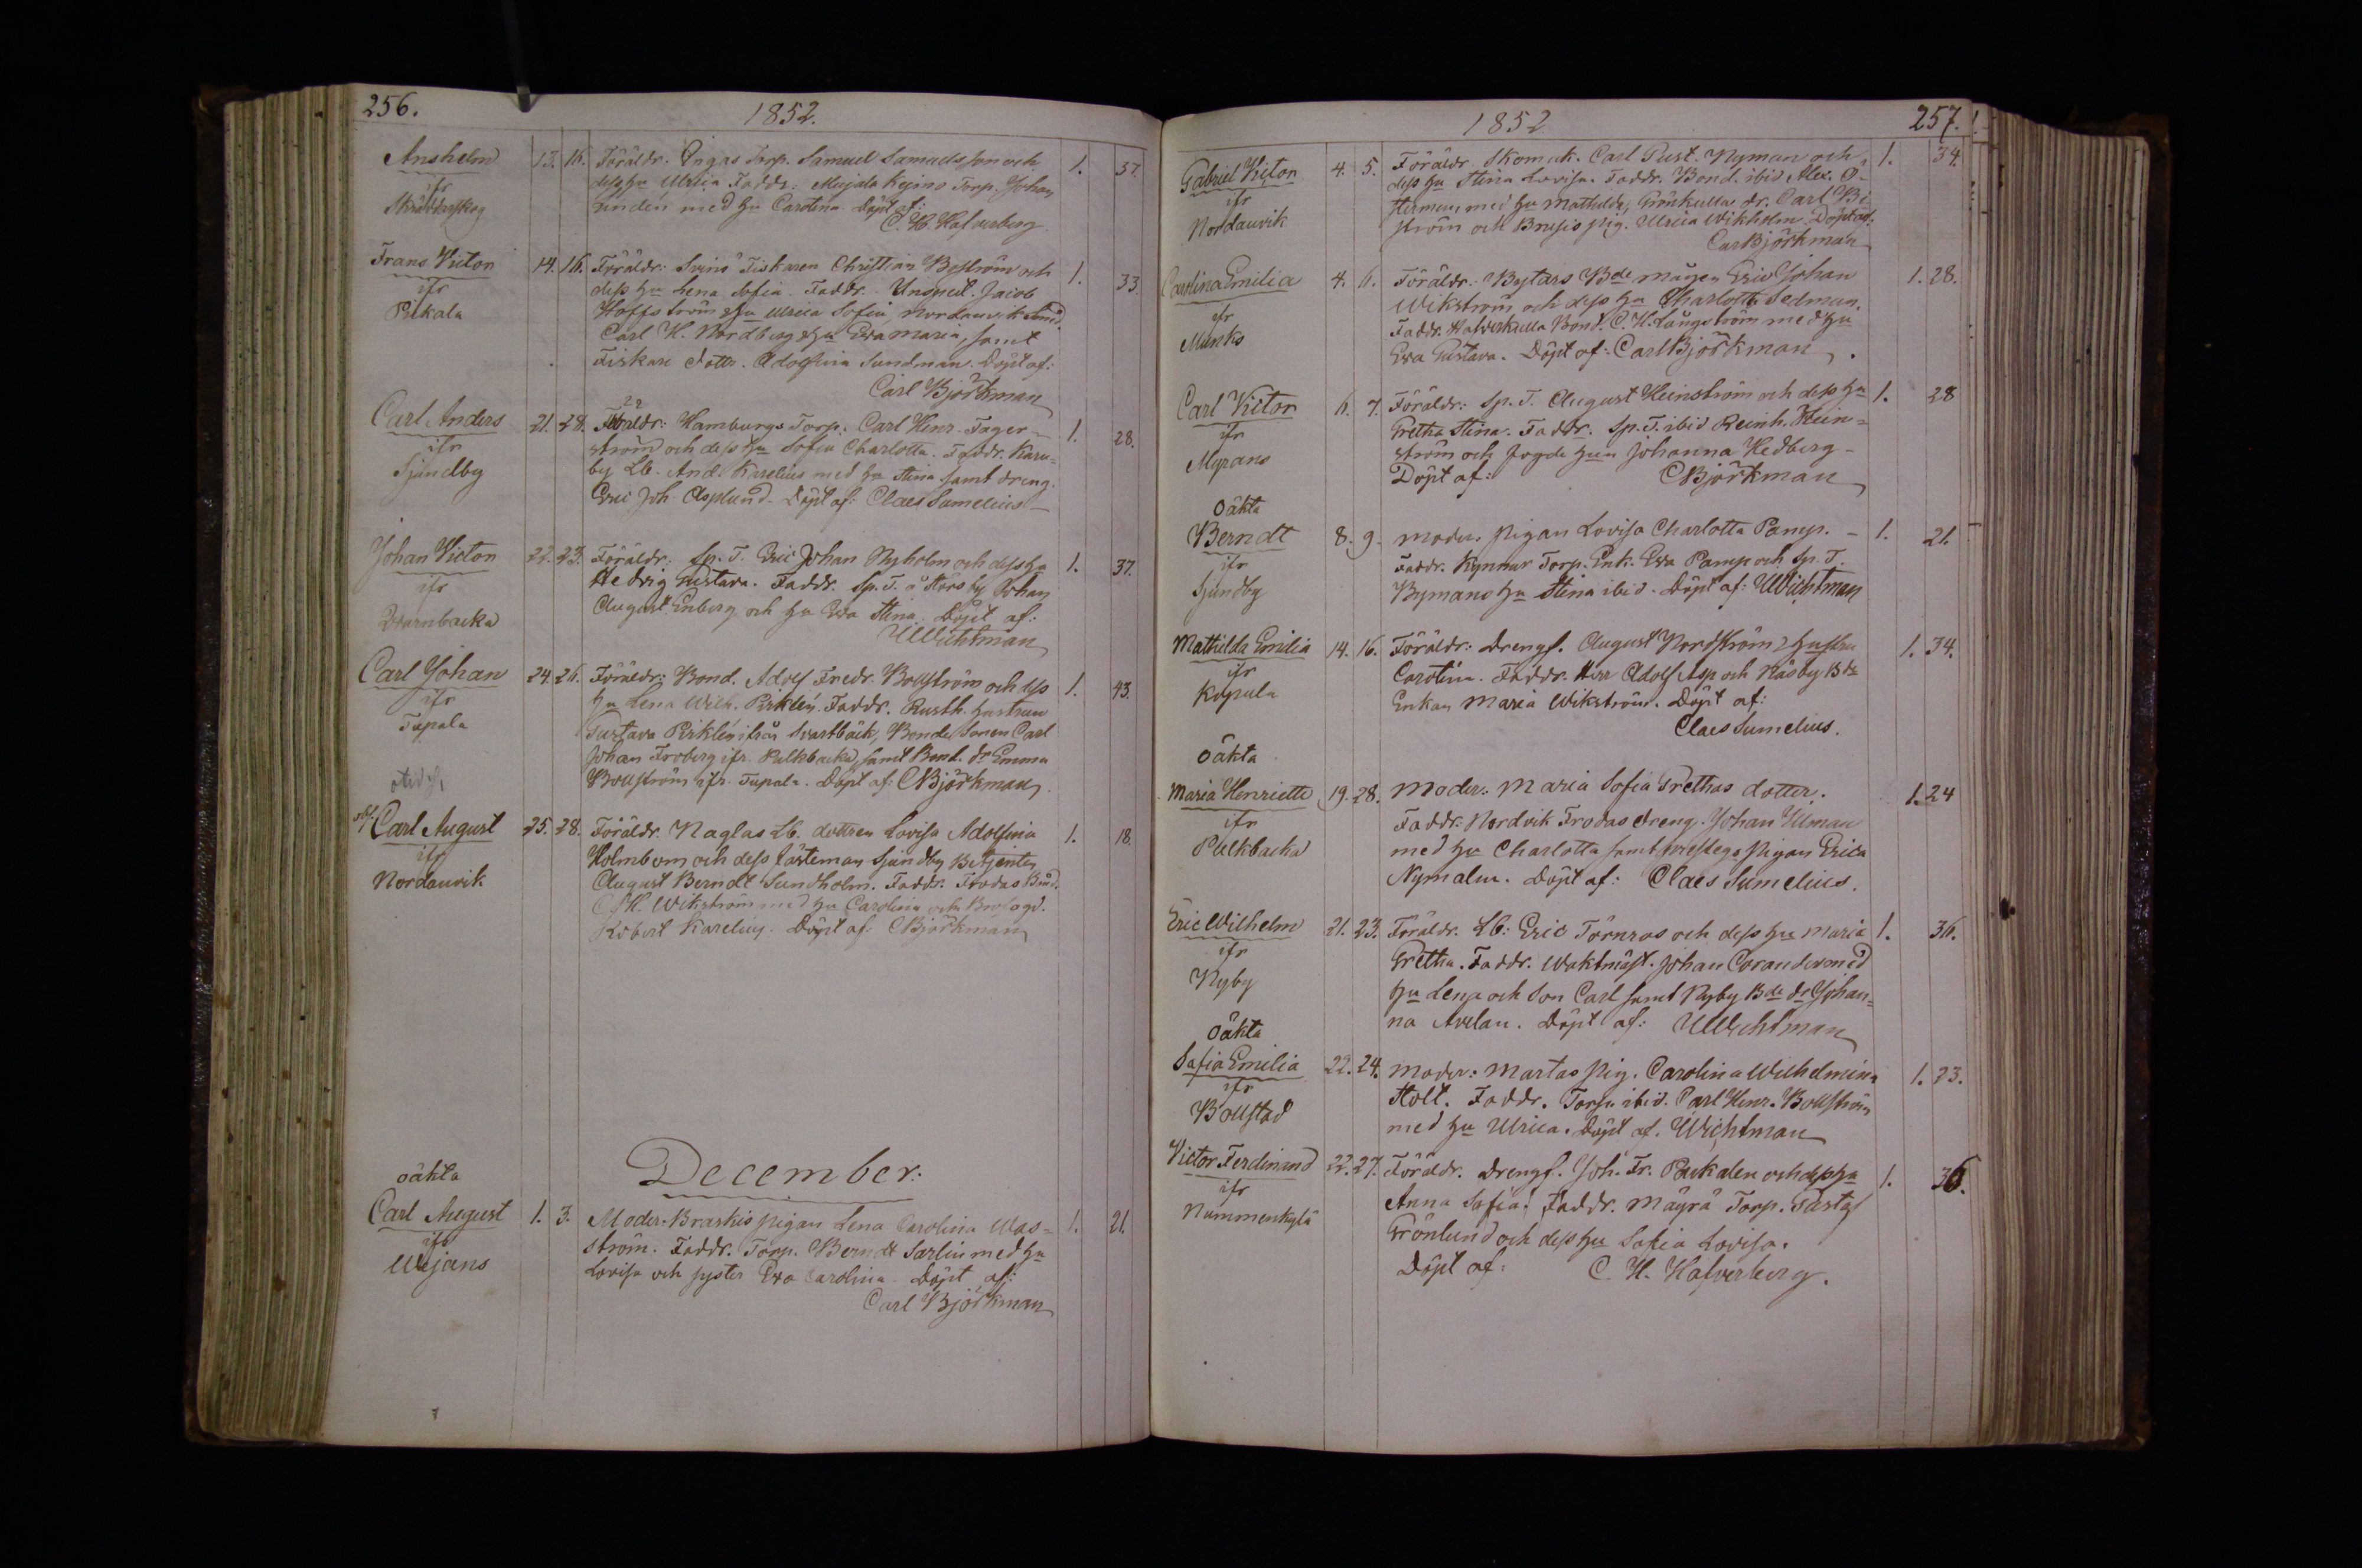 256.
1852.
Anshelm 13. 16. Föräldr. Ingas Torp. Samuel Samuelsson och 1. 37.
ifr dess hu Ulrica Faddr. Torp. Johan
Skräddarskog med hu Carolina Döpt af:
C. H. Hafverberg.
Frans Victor 14. 16. Föräldr: Fiskaren Christian Byström och 1. 33.
ifr dess hu Lena Sofia. Faddr. Jacob
Pikala Hoffström & hu Ulrica Sofia, Nordanvik
Carl H. Nordberg & hu Eva Maria, samt
Fiskare dottr. Adolfina Sundman. Döpt af:
Carl Björkman
Carl Anders 21. 28. Föräldr: Hamburgs Torp. Carl Henr. Fager- 1. 28.
ifr ström och dess hu Sofia Charlotta. Faddr. Karu=
Sjundby by Lb. And. Karelius med hu Stina samt dreng.
Eric Joh. Asplund. Döpt af: Claes Sumelius
Johan Victor 22. 23. Föräldr: Sp. T. Eric Johan Nyholm och dess hu 1. 37.
ifr Hedvig Gustava. Faddr. Sp. T. Johan
Dvarnbacka August Enberg och hu Eva Stina. Döpt af:
UWichtman
Carl Johan 24. 26. Föräldr: Bond. Adolf Fredr. Bollström och dess 1. 43.
ifr hu Lena Wilh. Pirklén. Faddr. Rusth. hustrun
Tupala Gustava Pirklén ifrån Svartbäck, Bonde Sonen Carl
Johan Froberg ifr. Pulkbacka, samt Bond. dr Emma
Bollström ifr. Tupala. Döpt af: CBjörkman
Carl August 25. 28. Föräldr. Naglas Lb. dottren Lovisa Adolfina 1. 18.
ifr Holmbom och dess fästeman Sjundby Betjenten
Nordanvik August Berndt Sundholm. Faddr. Frodas Bond.
C. H. Wikström med hu Carolina och
Robert Karelius. Döpt af: CBjörkman
December:
oäkta
Carl August 1. 3. Moder. Braskis pigan Lena Carolina Was= 1. 21.
ifr ström. Faddr. Torp. Berndt Sarlin med hu
Wejans Lovisa och syster Eva Carolina. Döpt af:
Carl Björkman
1852
257.
Gabriel Victor 4. 5. Föräldr. Skomak. Carl Gust. Nyman och 1. 34.
ifr dess hu Stina Lovisa. Faddr. Bond. ibid Alex. Ö-
Nordanvik sterman med hu Mathilda, Gränkullas dr. Carl By
ström och Brusis pig. Ulrica Wikholm. Döpt af:
Carl Björkman
Carolina Emilia 4. 6. Föräldr. Bytars Bde mågen Eric Johan 1. 28.
ifr Wikström och dess hu Charlotta Sedman.
Munks Faddr. Halverkulla Bond. C. H. Långström med hu
Eva Gustava. Döpt af: Carl Björkman
Carl Victor 6. 7. Föräldr: Sp. T. August Heinström och dess hu 1. 28
ifr Gretha Stina. Faddr. Sp. T. ibid Reinh. Hein=
Myrans ström och fogde hun Johanna Hedberg
Döpt af: CBjörkman
oäkta
Berndt 8. 9. Moder. pigan Lovisa Charlotta Pamp. 1. 21.
ifr Faddr. Kynnar Torp. Enk. Eva Pamp och Sp. T.
Sjundby Bymans hu Stina ibid. Döpt af: UWichtman
Mathilda Emilia 14. 16. Föräldr: drengf. August Nordström & hustru 1. 34.
ifr Carolina. Faddr. Herr Adolf Asp och Näsby Bde
Kopula Enkan Maria Wikström. Döpt af:
Claes Sumelius.
oäkta
Maria Henriette 19. 28. Moder: Maria Sofia Grethas dotter. 1. 24
ifr Faddr. Nordvik Frodas dreng. Johan Ulman
Pulkbacka med hu Charlotta samt pigan Erica
Nymalm. Döpt af: Claes Sumelius.
Eric Wilhelm 21. 23. Föräldr. Lb: Eric Törnros och dess hu Maria 1. 36.
ifr Gretha. Faddr. Waktmäst. Johan Corander med
Nyby hu Lena och Son Carl samt Nyby Bde dr Johan=
na Avelan. Döpt af: UWichtman
oäkta
Sofia Emilia 22. 24. Moder: Martas pig. Carolina Wilhelmina 1. 23.
ifr Holt. Faddr. Torp. ibid. Carl Henr. Bollström
Bollstad med hu Ulrica. Döpt af. UWichtman
Victor Ferdinand 22. 27. Föräldr. drengf. Joh. Fr. Pakalen och dess hu 1. 36.
ifr Anna Sofia. Faddr. Mäyrä Torp. Gustaf
Nummenkylä Grönlund och dess hu Sofia Lovisa.
Döpt af: C. H. Hafverberg.